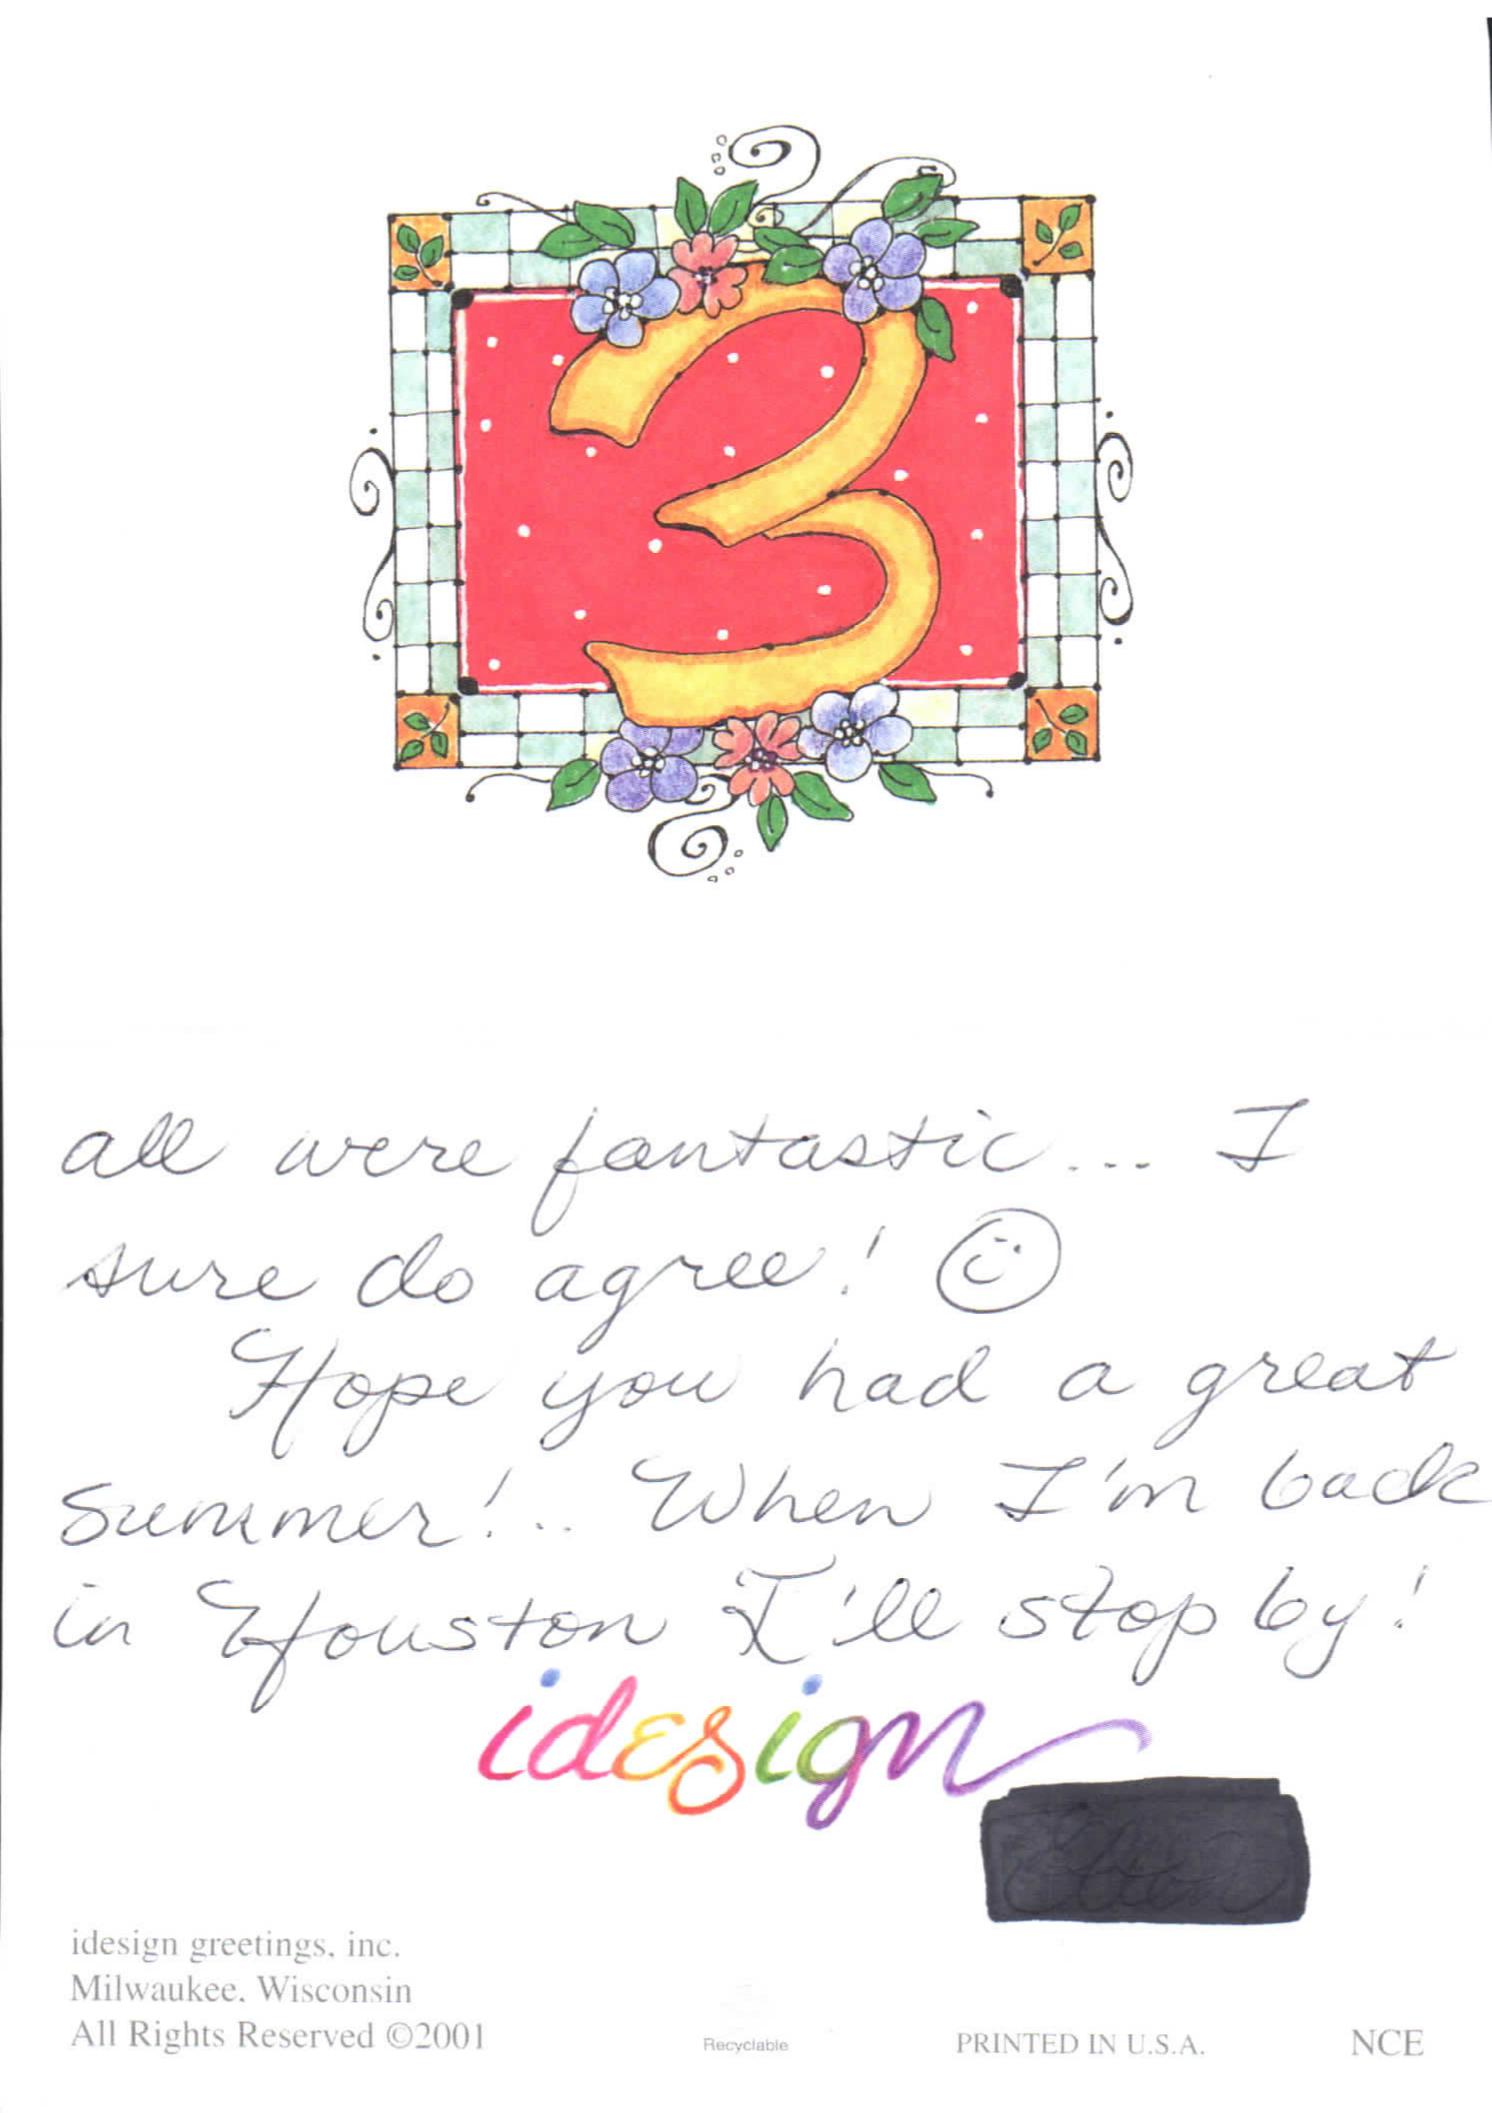 3
all were fantastic... I
sure do agree!
Hope you had a great
summer!... When I'm back
in Houston I'll stop by!
idesign
idesign greetings, inc.
Milwaukee, Wisconsin
All Rights Reserved ©2001
Recyclable
PRINTED IN U.S.A.
NCE